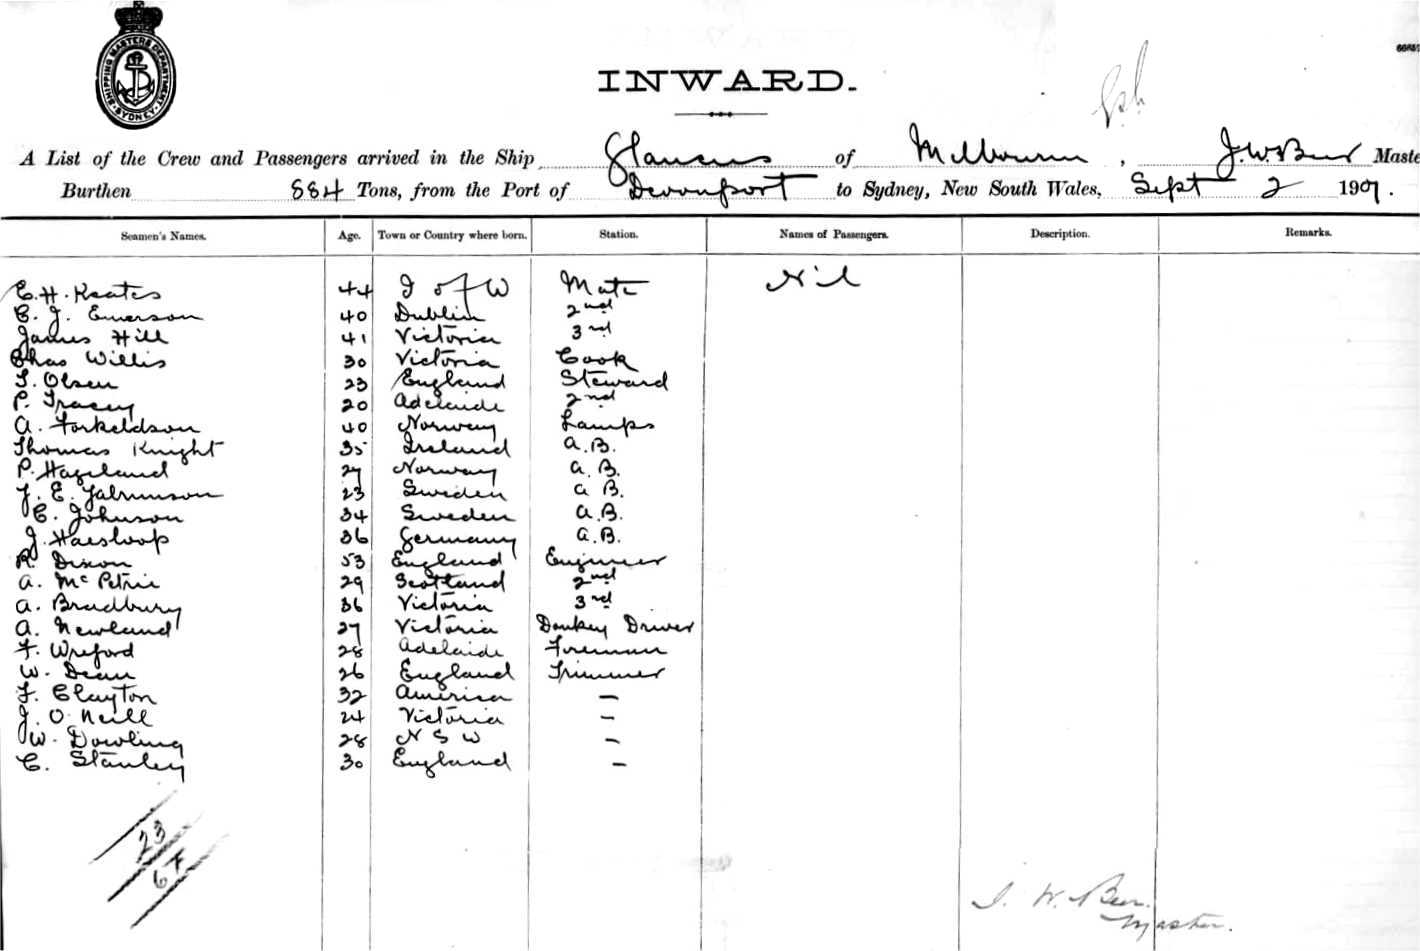 SHIPPING MASTERS DEPARTMENT
SYDNEY
INWARD.
A List of the Crew and Passengers arrived in the Ship Glaucus of Melbourne, J.W. Beer Maste
Burthen 884 Tons, from the Port of Devonport to Sydney, New South Wales, Sept 2 1907.
Seamen's Names. Age. Town or Country where born. Station. Names of Passengers. Description. Remarks.
C.H. Keates 44 I of W Mate Nil
C. J. Emerson 40 Dublin 2nd
James Hill 41 Victoria 3rd
Chas Willis 30 Victoria Cook
T. Olsen 23 England Steward
P. Tracey 20 Adelaide 2nd
A. Torkeldson 40 Norway Lamps
Thomas Knight 35 Ireland A.B.
P. Hageland 27 Norway A.B.
J. E. 23 Sweden A B.
C. Johnson 34 Sweden A.B.
J. 36 Germany A.B.
R. Dixon 53 England Engineer
A. McPetrie 29 Scotland 2nd
A. Bradbury 36 Victoria 3rd
A. Newland 27 Victoria Donkey Driver
F. Wreford 28 Adelaide Fireman
W. Dean 26 England Trimmer
F. Clayton 32 America —
J. O Neill 24 Victoria —
W. Dowling 28 N S W —
C. Stanley 30 England —
23
6 F
J. W. Beer.
Master.